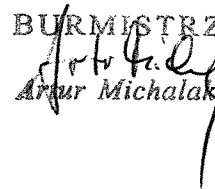 BURMISTRZ
Artur Michalak